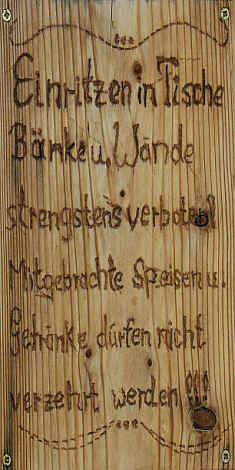 Einritzen in Tische
Bänke u. Wände
strengstens verboten!
Mitgebrachte Speisen u.
Getränke dürfen nicht
verzehrt werden!!!